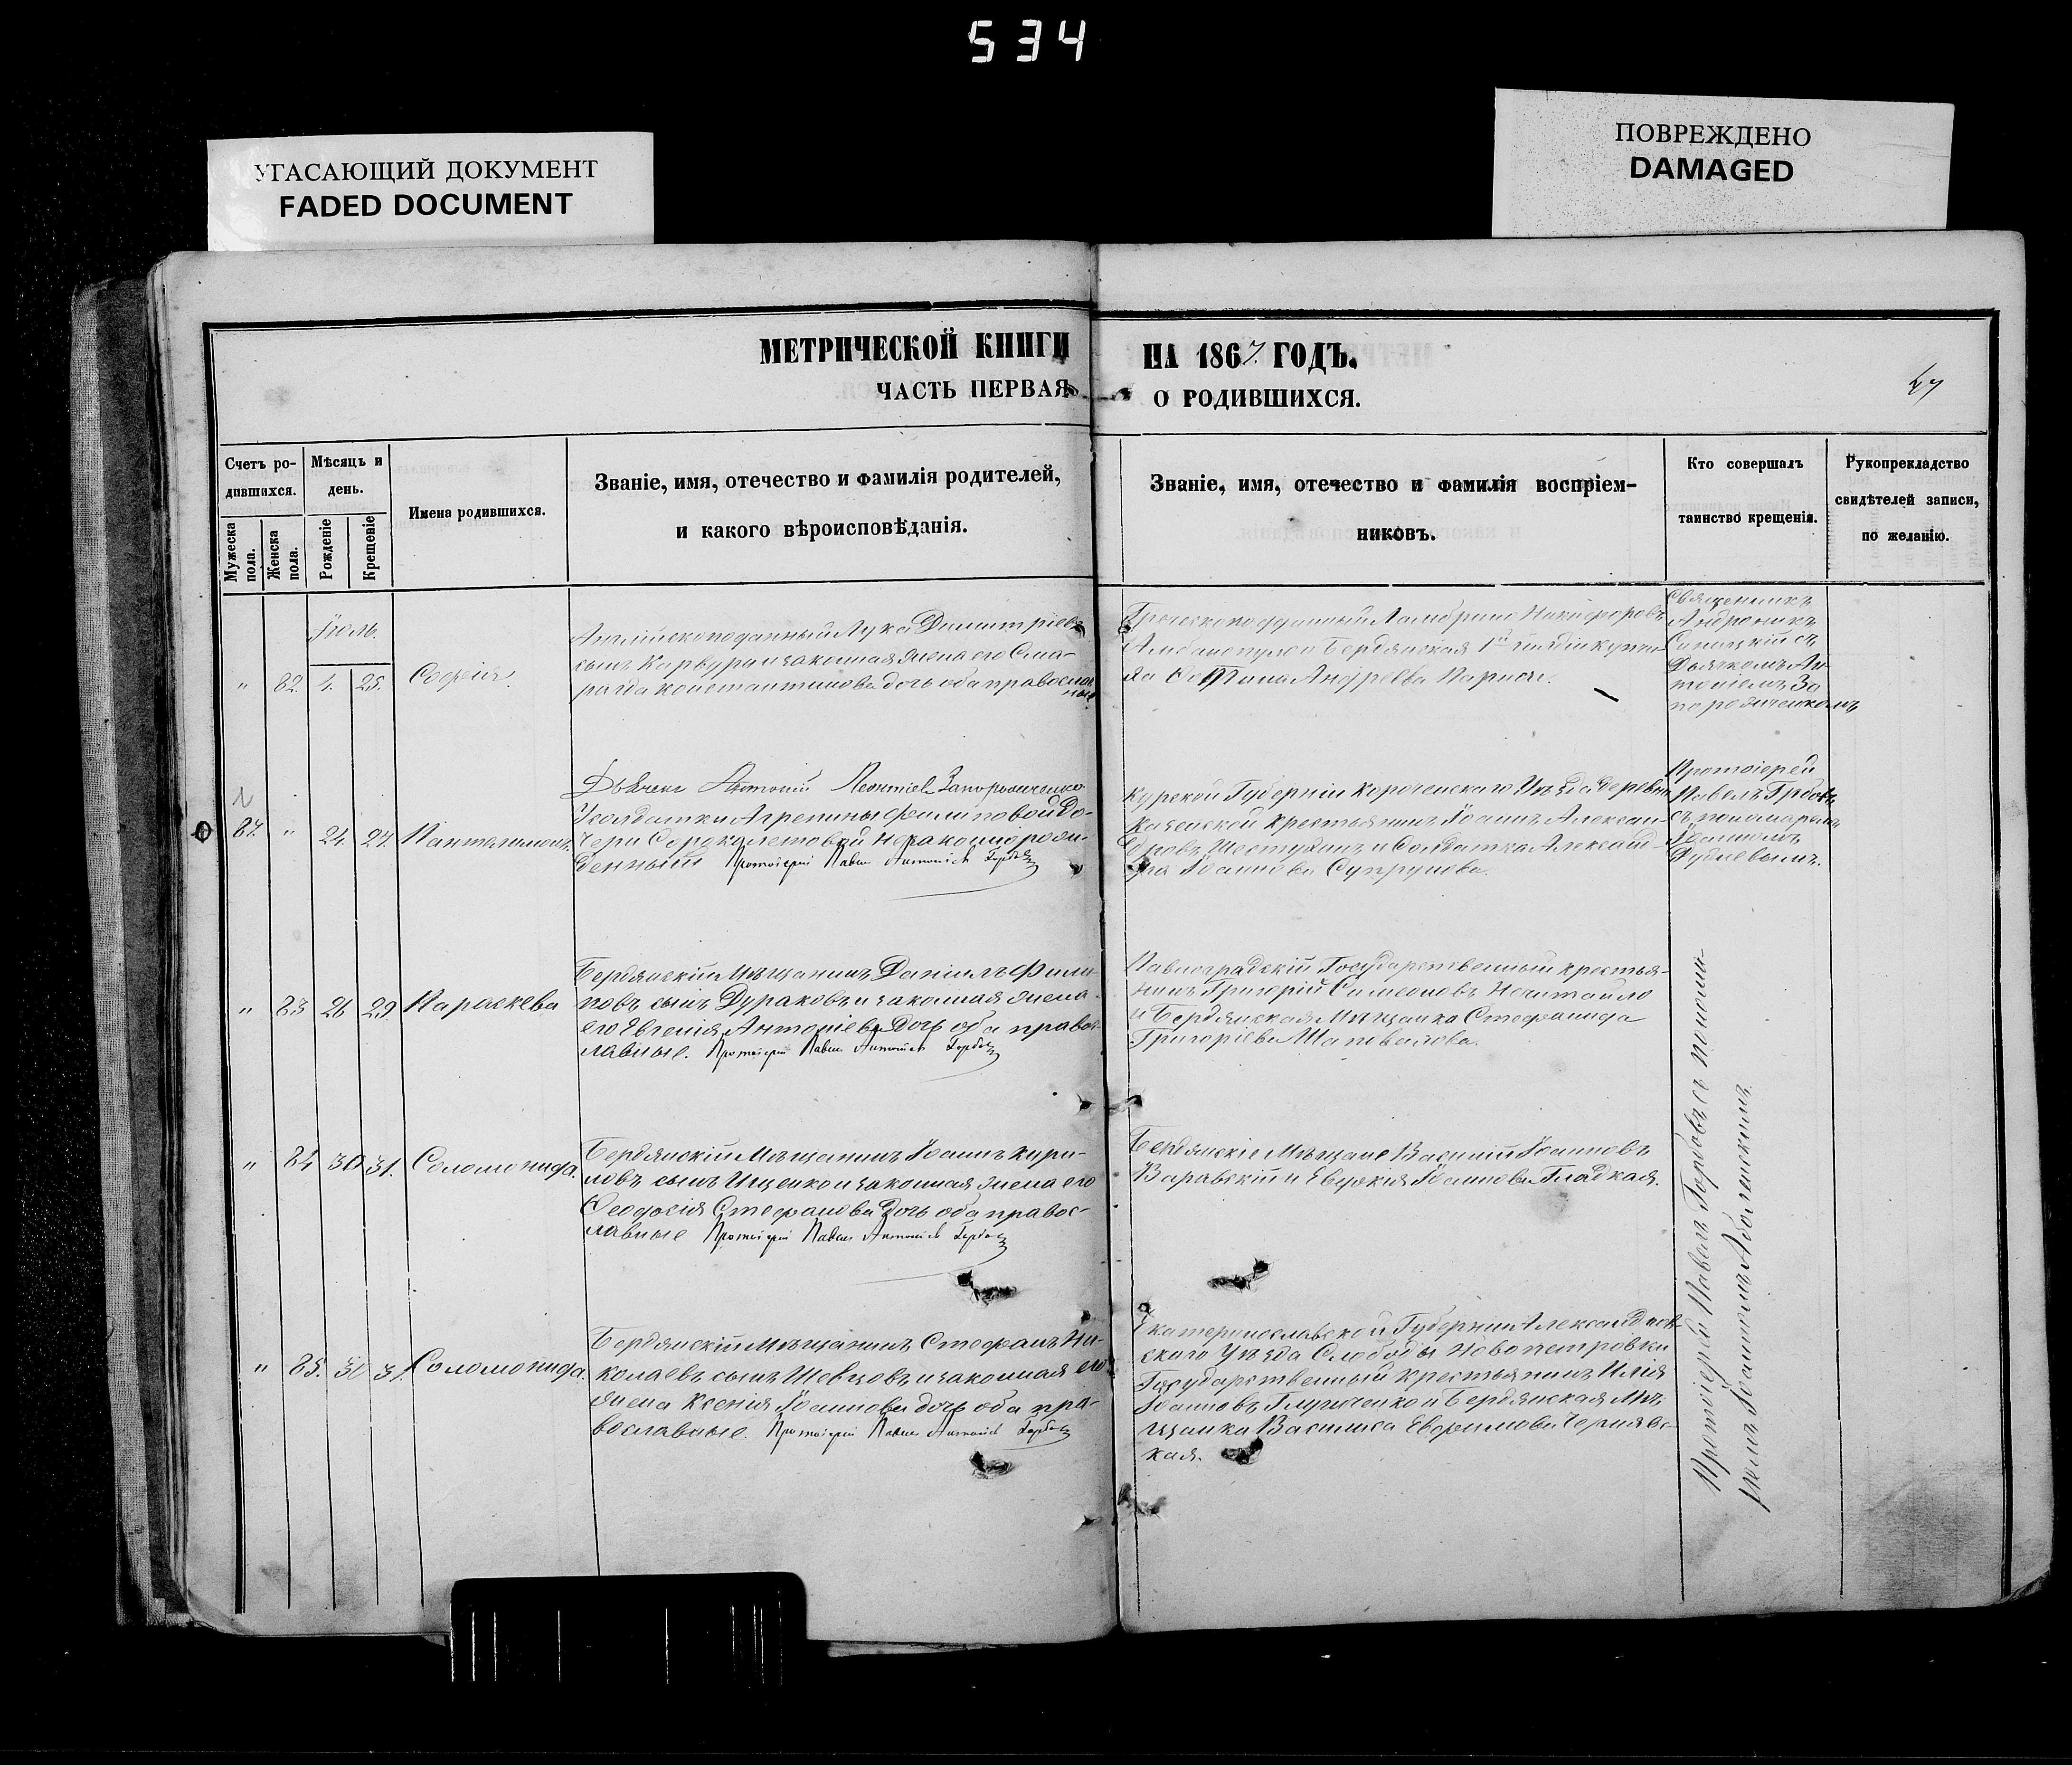 534
УГАСАЮЩИЙ ДОКУМЕНТ
FADED DOCUMENT
ПОВРЕЖДЕНО
DAMAGED
МЕТРИЧЕСКОЙ КНИГИ НА 1867 ГОДЪ.
ЧАСТЬ ПЕРВАЯ О РОДИВШИХСЯ.
47
Счетъ ро-
дившихся.
Мужеска пола.
Женска пола.
Мѣсяцъ и
день.
Рожденіе
Крещеніе
Имена родившихся.
Званіе, имя, отечество и фамилія родителей,
и какого вѣроисповѣданія.
Званіе, имя, отечество и фамилія воспріем-
никовъ.
Кто совершалъ
таинство крещенія.
Рукоприкладство
свидѣтелей записи,
по желанію.
Іюль.
" 82. 1. 25. Софія.
Англійскоподанный Лука Димитріевъ
сынъ Карвура и законная жена его Сма-
рагда Константинова дочь оба православ-
ные.
Греческоподданный Ламбрино Никифоровъ
и Бердянская 1й гильдіи купчи-
ха Андреева
Священникъ
Андроникъ
Синицкій съ
Дьячкомъ Ан-
тоніемъ За-
порожченкомъ
Дьячекъ Антоній Леонтіев Запорожченко
87. " 24. 27. Пантелеимонъ.
У солдатки Агрепины Филиповой До-
чери Сороколетовой незаконнорож-
денный Протоіерей Павел Антоніев
Курской Губерніи Корочанскаго Уѣзда деревни
крестьянинъ Іоаннъ Алексан-
дровъ и Солдатка Александ-
ра Іоаннова Супрунова.
Протоіерей
Павелъ
съ пономаремъ
Іоанномъ
" 83 26 29. Параскева
Бердянскій Мѣщанинъ Даніилъ Фили-
повъ сынъ Дураковъ и законная жена
его Евгенія Антоніева Дочь оба право-
славные. Протоіерей Павел Антоніев
Павлоградскій Государственный крестья-
нинъ Григорій Симеоновъ Нечитайло
и Бердянская Мѣщанка Стефанида
Григорьева Шаповалова.
" 84 30 31. Соломонида.
Бердянскій Мѣщанинъ Іоаннъ Кири-
ловъ сынъ Ищенко и законная жена его
Феодосія Стефанова Дочь оба правос-
лавные Протоіерей Павел Антоніев
Бердянскіе Мѣщане Василій Іоанновъ
Варавскій и Евдокія Іоаннова Гладкая.
" 85. 30 31 Соломонида.
Бердянскій Мѣщанинъ Стефанъ Ни-
колаевъ сынъ Шевцовъ и законная его
жена Ксенія Іоаннова дочь оба пра-
вославные. Протоіерей Павел Антоніев
Екатеринославской Губерніи Александров-
скаго Уѣзда Слободы Новопетровки
Государственный крестьянинъ Илія
Іоанновъ и Бердянская Мѣ-
щанка Василиса Евфимова Чернявс-
кая.
Протоіерей Павелъ съ понома-
ремъ Іоанномъ